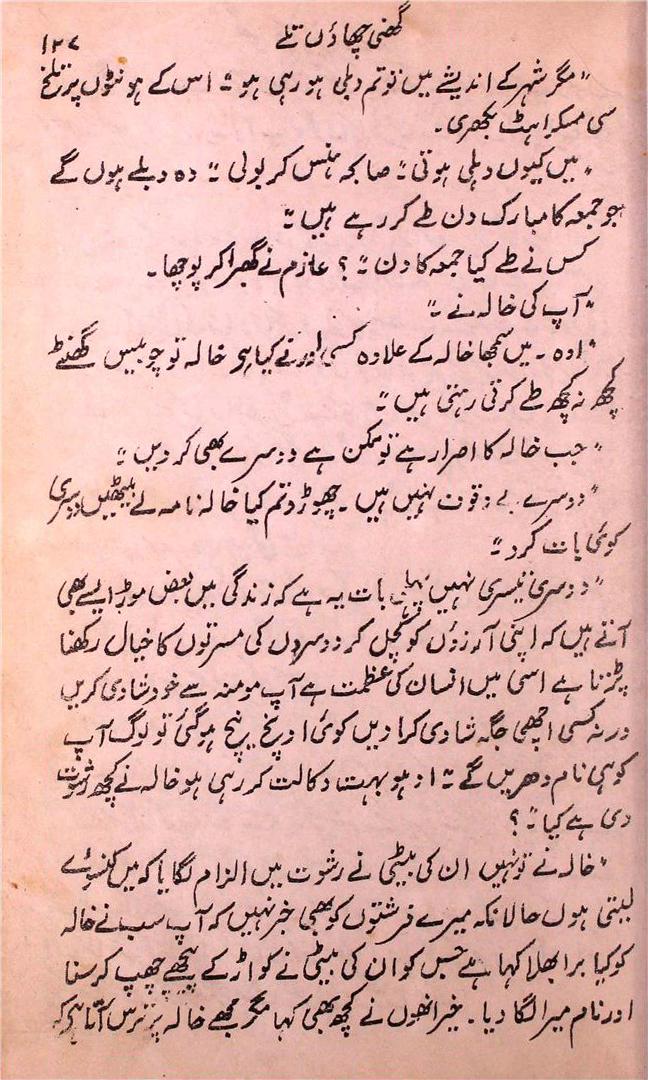 گھنی چھاؤں تلے
۱۲۷
"مگر شہر کے اندیشے میں تو تم دبلی ہو رہی ہو"۔ اس کے ہونٹوں پر تلخ
سی مسکراہٹ بکھری۔
"میں کیوں دبلی ہوتی"۔ صابحہ ہنس کر بولی "۔ وہ دبلے ہوں گے
جو جمعہ کا مبارک دن طے کر رہے ہیں"۔
کس نے طے کیا جمعہ کا دن"۔؟ عازم نے گھبرا کر پوچھا۔
"آپ کی خالہ نے"۔
"اوہ۔ میں سمجھا خالہ کے علاوہ کسی اور نے کیا ہو خالہ تو چوبیس گھنٹے
کچھ نہ کچھ طے کرتی رہتی ہیں"۔
"جب خالہ کا اصرار ہے تو ممکن ہے دوسرے بھی کر دیں"۔
"دوسرے بے وقوف نہیں ہیں۔ چھوڑو تم کیا خالہ نامہ لے بیٹھیں دوسری
کوئی بات کرو"۔
"دوسری تیسری نہیں پہلی بات یہ ہے کہ زندگی میں بعض موڑ ایسے بھی
آتے ہیں کہ اپنی آرزوؤں کو کچل کر دوسروں کی مسرتوں کا خیال رکھنا
پڑتا ہے اسی میں انسان کی عظمت ہے آپ مومنہ سے خود شادی کریں
ورنہ کسی اچھی جگہ شادی کرا دیں کوئی اونچ نیچ ہو گئی تو لوگ آپ
کو ہی نام دھریں گے"۔ اوہو بہت وکالت کر رہی ہو خالہ نے کچھ رشوت
دی ہے کیا"۔؟
"خالہ نے تو نہیں ان کی بیٹی نے رشوت میں الزام لگایا کہ میں کنسوئے
لیتی ہوں حالانکہ میرے فرشتوں کو بھی خبر نہیں کہ آپ سب نے خالہ
کو کیا برا بھلا کہا ہے جس کو ان کی بیٹی نے کواڑ کے پیچھے چھپ کر سنا
اور نام میرا لگا دیا۔ خیر انھوں نے کچھ بھی کہا مگر مجھے خالہ پر ترس آتا ہے کہ